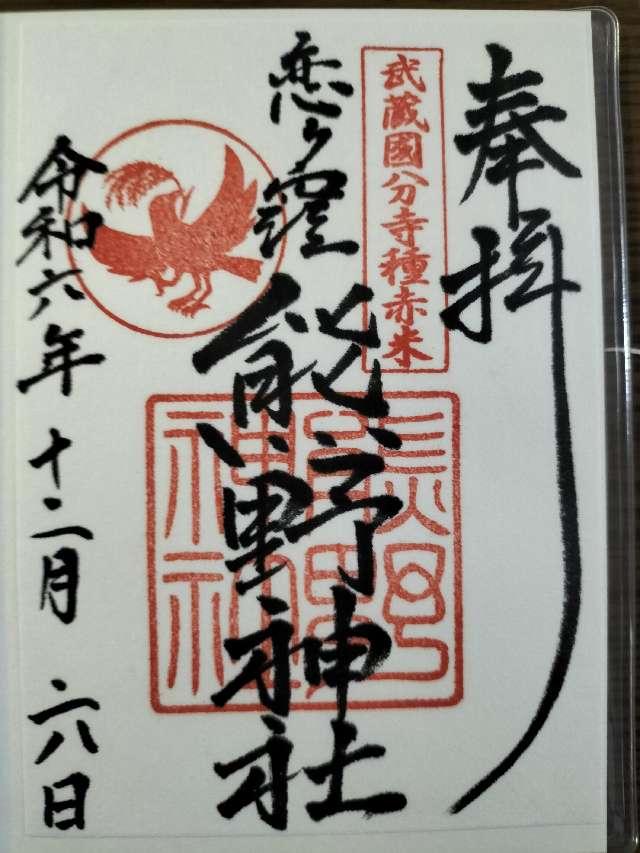 奉拝
武蔵國分寺種赤米
恋ヶ窪
熊野神社
熊野
神社
令和六年十二月二八日